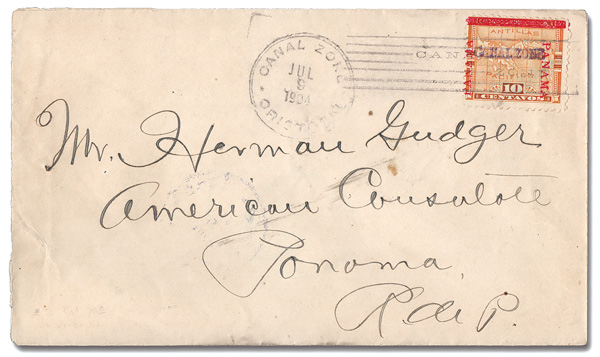 CANAL ZONE
JUL
9
1904
CRISTOBAL
CANAL
ANTILLAS
CANAL ZONE
PANAMA
PANAMA
PACIFICO
10
CENTAVOS
Mr. Herman Gudger
American Consulate
Panama,
R de P.